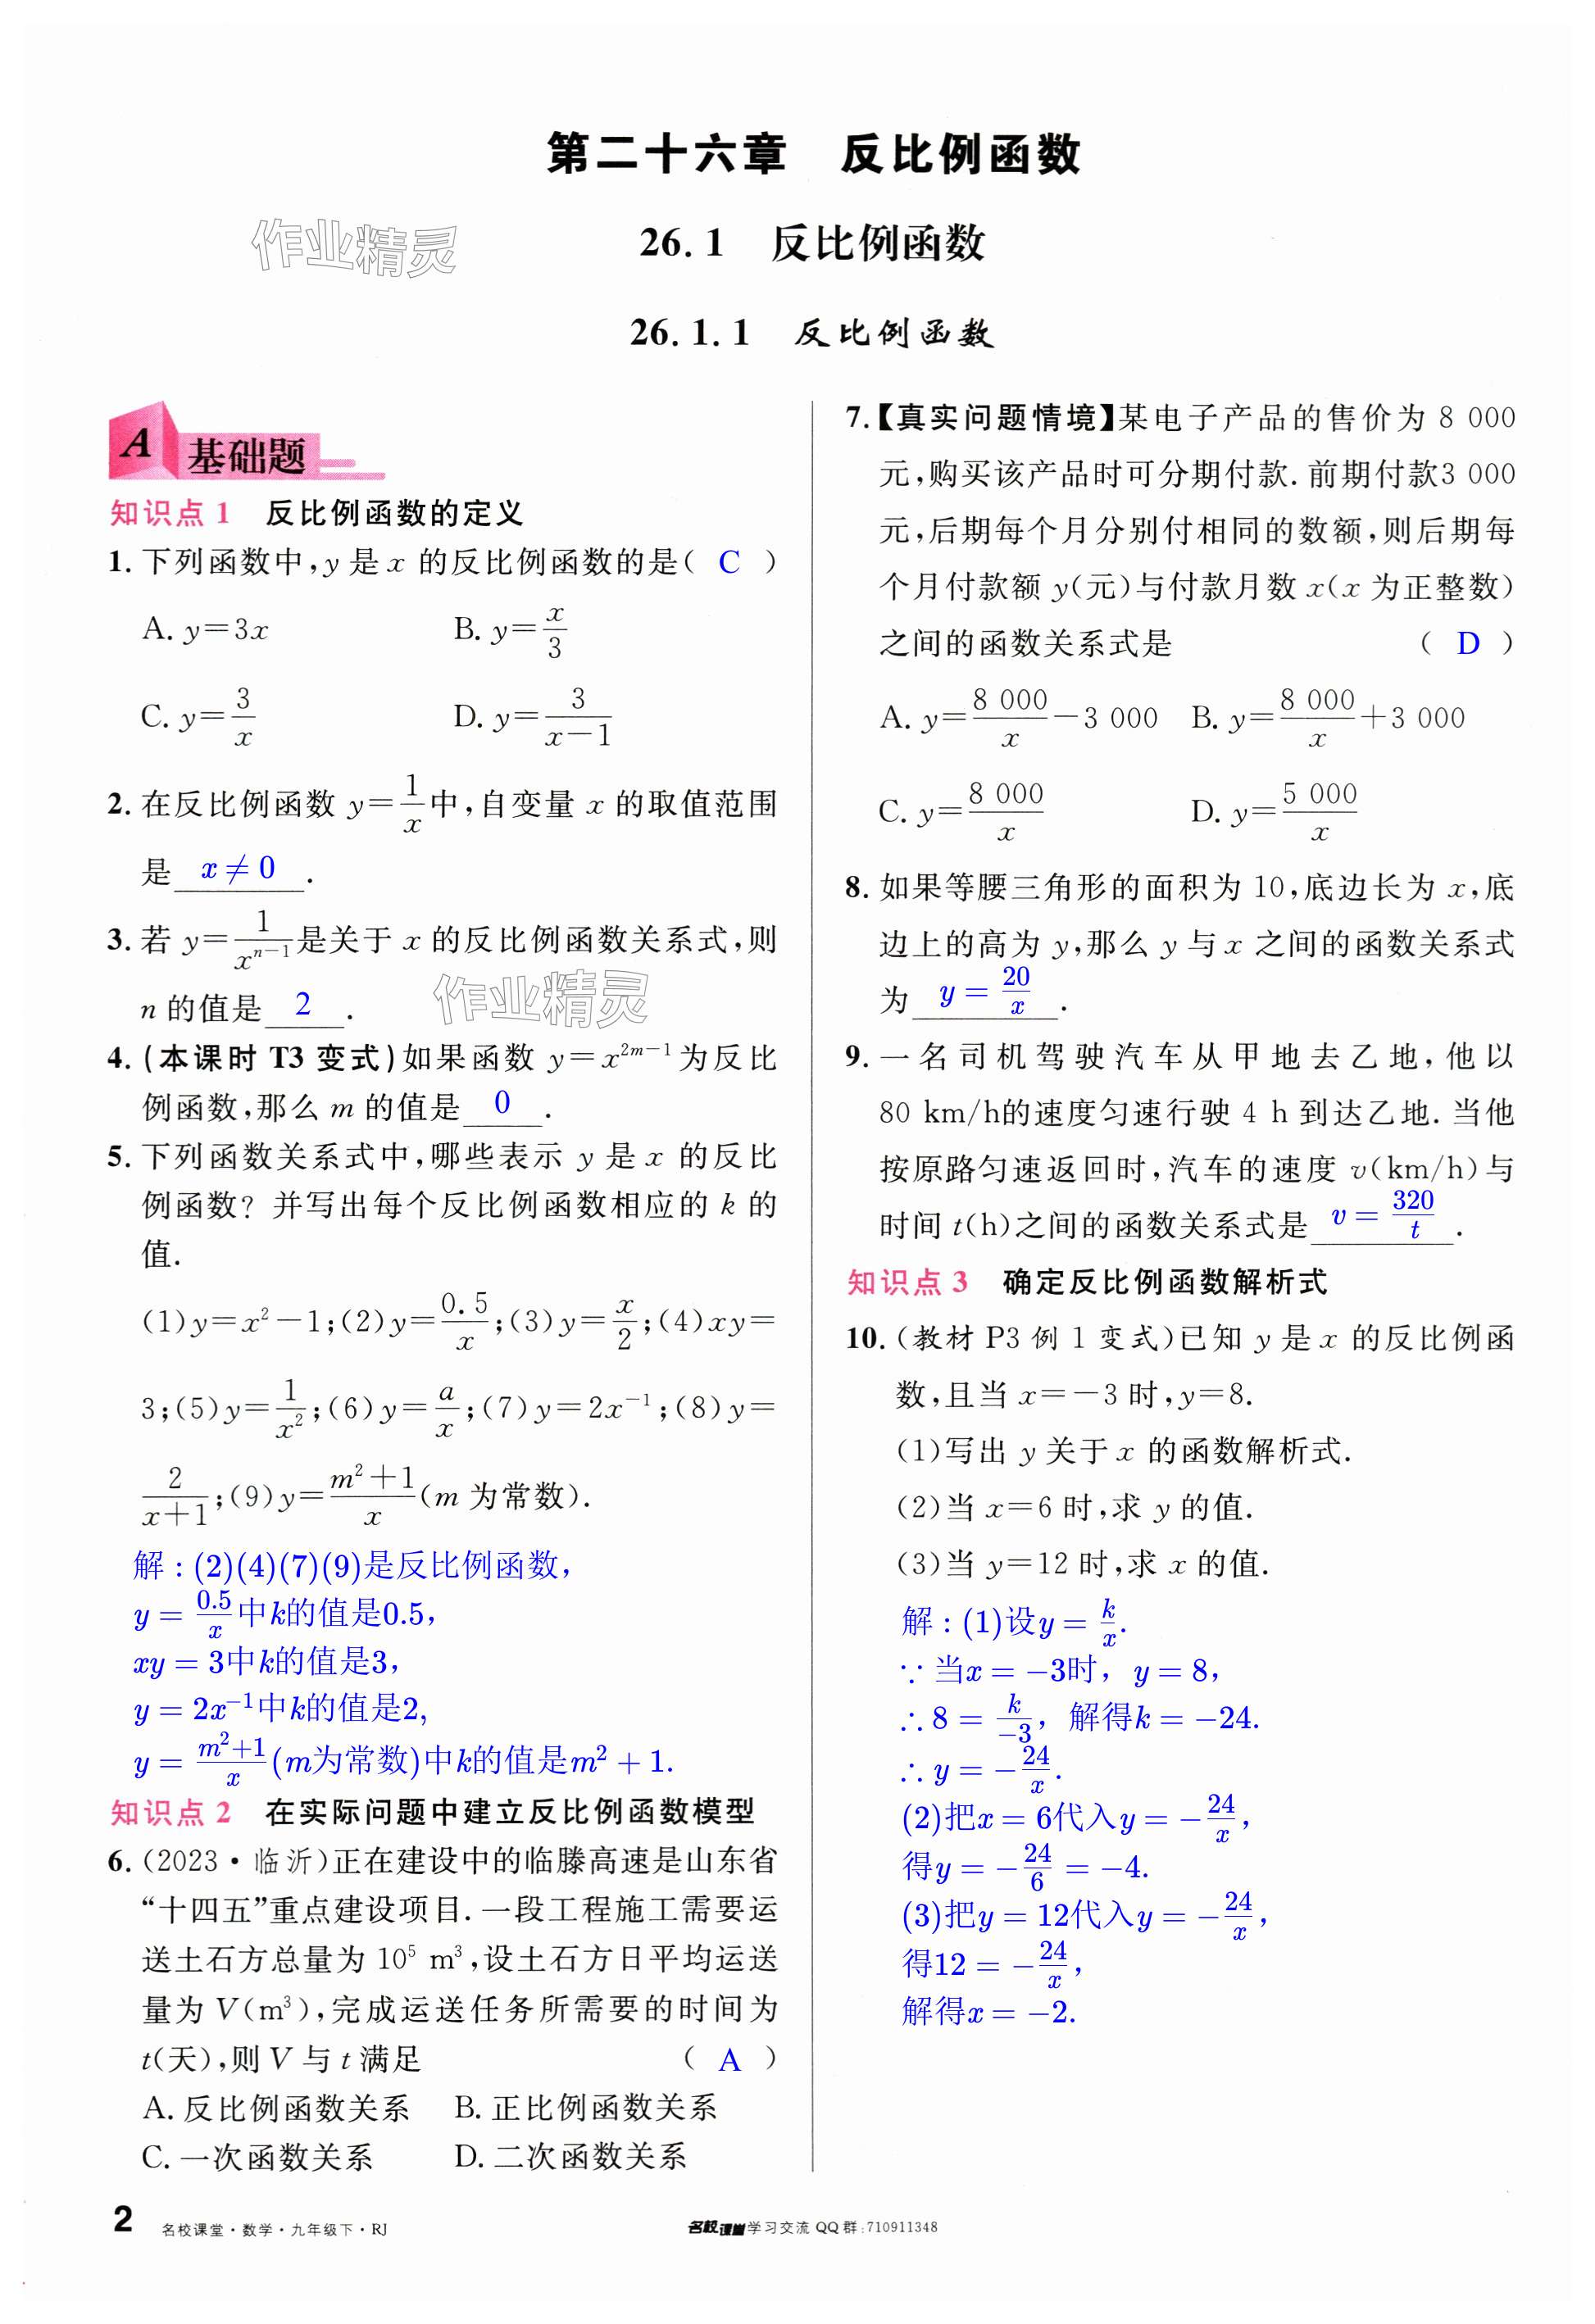 第二十六章 反比例函数
作业精灵
26.1 反比例函数
26.1.1 反比例函数
A 基础题
知识点 1 反比例函数的定义
1. 下列函数中,y 是 x 的反比例函数的是( C )
A. y=3x B. y=x/3
C. y=3/x D. y=3/(x-1)
2. 在反比例函数 y=1/x中,自变量 x 的取值范围
是 x≠0 .
3. 若 y=1/x^(n-1)是关于 x 的反比例函数关系式,则
作业精灵
n 的值是 2 .
4. (本课时 T3 变式)如果函数 y=x^(2m-1)为反比
例函数,那么 m 的值是 0 .
5. 下列函数关系式中,哪些表示 y 是 x 的反比
例函数? 并写出每个反比例函数相应的 k 的
值.
(1)y=x²-1;(2)y=0.5/x;(3)y=x/2;(4)xy=
3;(5)y=1/x²;(6)y=a/x;(7)y=2x⁻¹;(8)y=
2/(x+1);(9)y=(m²+1)/x(m 为常数).
解:(2)(4)(7)(9)是反比例函数,
y=0.5/x中k的值是0.5,
xy=3中k的值是3,
y=2x⁻¹中k的值是2,
y=(m²+1)/x(m为常数)中k的值是m²+1.
知识点 2 在实际问题中建立反比例函数模型
6. (2023·临沂)正在建设中的临滕高速是山东省
“十四五”重点建设项目. 一段工程施工需要运
送土石方总量为 10⁵ m³,设土石方日平均运送
量为 V(m³),完成运送任务所需要的时间为
t(天),则 V 与 t 满足 ( A )
A. 反比例函数关系 B. 正比例函数关系
C. 一次函数关系 D. 二次函数关系
7.【真实问题情境】某电子产品的售价为 8 000
元,购买该产品时可分期付款. 前期付款3 000
元,后期每个月分别付相同的数额,则后期每
个月付款额 y(元)与付款月数 x(x 为正整数)
之间的函数关系式是 ( D )
A. y=8 000/x-3 000 B. y=8 000/x+3 000
C. y=8 000/x D. y=5 000/x
8. 如果等腰三角形的面积为 10,底边长为 x,底
边上的高为 y,那么 y 与 x 之间的函数关系式
为 y=20/x .
9. 一名司机驾驶汽车从甲地去乙地,他以
80 km/h的速度匀速行驶 4 h 到达乙地. 当他
按原路匀速返回时,汽车的速度 v(km/h)与
时间 t(h)之间的函数关系式是 v=320/t .
知识点 3 确定反比例函数解析式
10. (教材 P3 例 1 变式)已知 y 是 x 的反比例函
数,且当 x=-3 时,y=8.
(1)写出 y 关于 x 的函数解析式.
(2)当 x=6 时,求 y 的值.
(3)当 y=12 时,求 x 的值.
解:(1)设y=k/x.
∵当x=-3时,y=8,
∴8=k/-3,解得k=-24.
∴y=-24/x.
(2)把x=6代入y=-24/x,
得y=-24/6=-4.
(3)把y=12代入y=-24/x,
得12=-24/x,
解得x=-2.
2 名校课堂·数学·九年级下·RJ
名校课堂学习交流 QQ 群:710911348